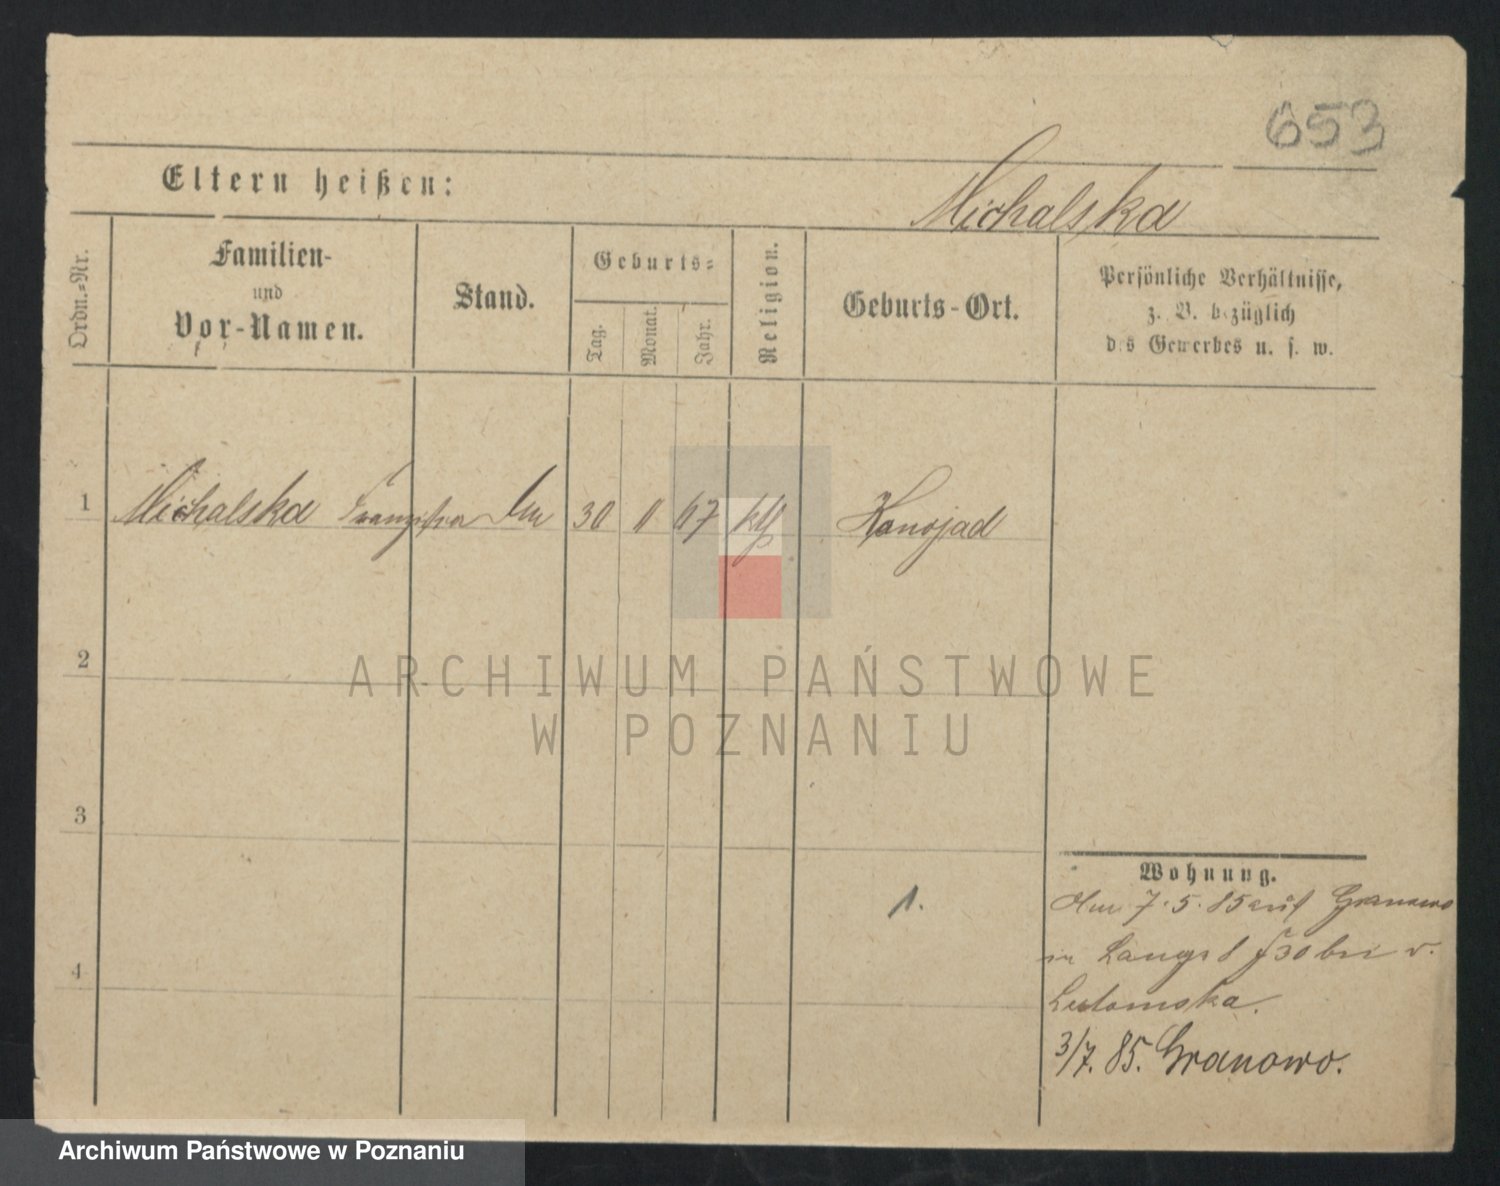 653
Eltern heißen:
Michalska
Ordn.=Nr.
Familien-
und
Vor-Namen.
Stand.
Geburts=
Tag.
Monat.
Jahr.
Religion.
Geburts-Ort.
Persönliche Verhältnisse,
z. B. bezüglich
des Gewerbes u. s. w.
1 Michalska Franziska 30 11 67 kth Konojad
2
3
4
1.
Wohnung.
Am 7.5.85 aus Granowo
in Langst 30 bei v.
Lutomska.
3/7. 85. Granowo.
ARCHIWUM PAŃSTWOWE
W POZNANIU
Archiwum Państwowe w Poznaniu